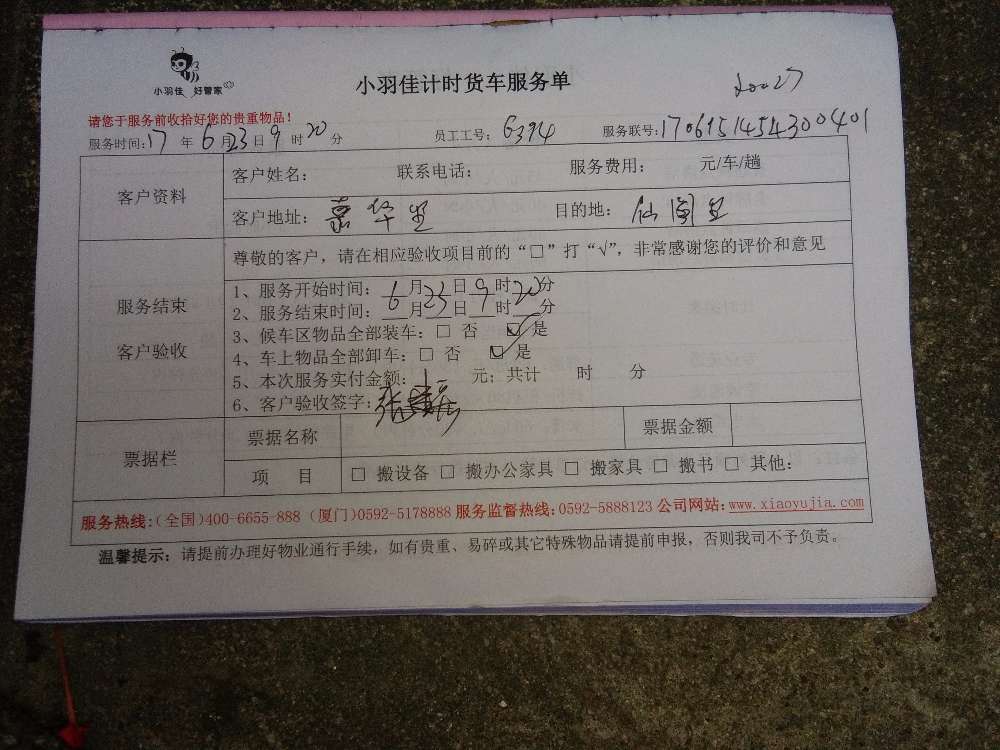 小羽佳 好管家
小羽佳计时货车服务单
请您于服务前收拾好您的贵重物品!
服务时间:17 年 6 月 23 日 9 时 20 分 员工工号: 6394 服务联号:1706151454300401
客户资料
客户姓名: 联系电话: 服务费用: 元/车/趟
客户地址: 嘉华里 目的地: 仙阁里
服务结束
客户验收
尊敬的客户,请在相应验收项目前的“□”打“√”,非常感谢您的评价和意见
1、服务开始时间: 6月23日9时20分
2、服务结束时间: __月__日__时__分
3、候车区物品全部装车: □ 否 ☑ 是
4、车上物品全部卸车: □ 否 ☑ 是
5、本次服务实付金额: 元; 共计 时 分
6、客户验收签字: 张
票据栏
票据名称 票据金额
项 目 □ 搬设备 □ 搬办公家具 □ 搬家具 □ 搬书 □ 其他:
服务热线:(全国)400-6655-888 (厦门)0592-5178888 服务监督热线:0592-5888123 公司网站:www.xiaoyujia.com
温馨提示: 请提前办理好物业通行手续,如有贵重、易碎或其它特殊物品请提前申报,否则我司不予负责。